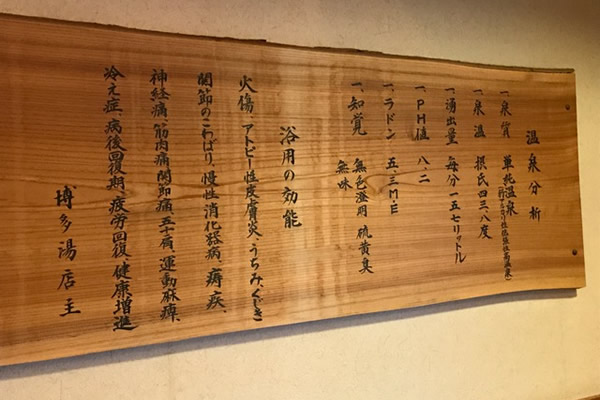 温泉分析
一、泉質 単純温泉
一、泉温 摂氏四三、八度
一、湧出量 毎分一五七リットル
一、PH値 八、二
一、ラドン 五、三M・E
一、知覚 無色澄明 硫黄臭
無味
浴用の効能
火傷、アトピー性皮膚炎、うちみ、くじき
関節のこわばり、慢性消化器病、痔疾、
神経痛、筋肉痛、関節痛、五十肩、運動麻痺、
冷え症、病後回復期、疲労回復、健康増進
博多湯店主